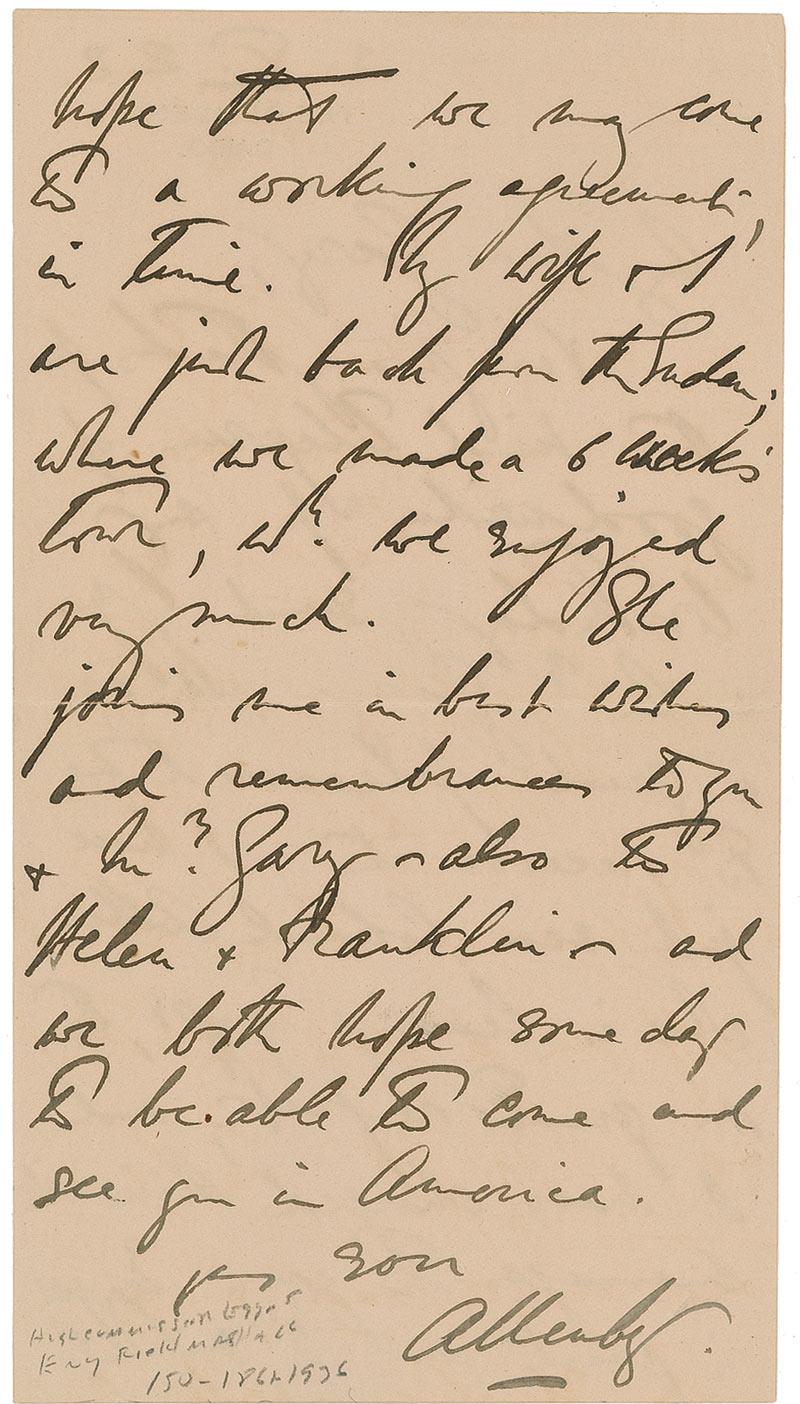 hope that we may come
to a working agreement,
in time. My wife & I
are just back from the Sudan;
where we made a 6 weeks
tour, wh. we enjoyed
very much. She
joins me in best wishes
and remembrances to you
& Mrs. Gary - also to
Helen & Franklin - and
we both hope some day
to be able to come and
see you in America.
yrs
Allenby.
High commission Egypt
Eng Field Marshall
1861-1936